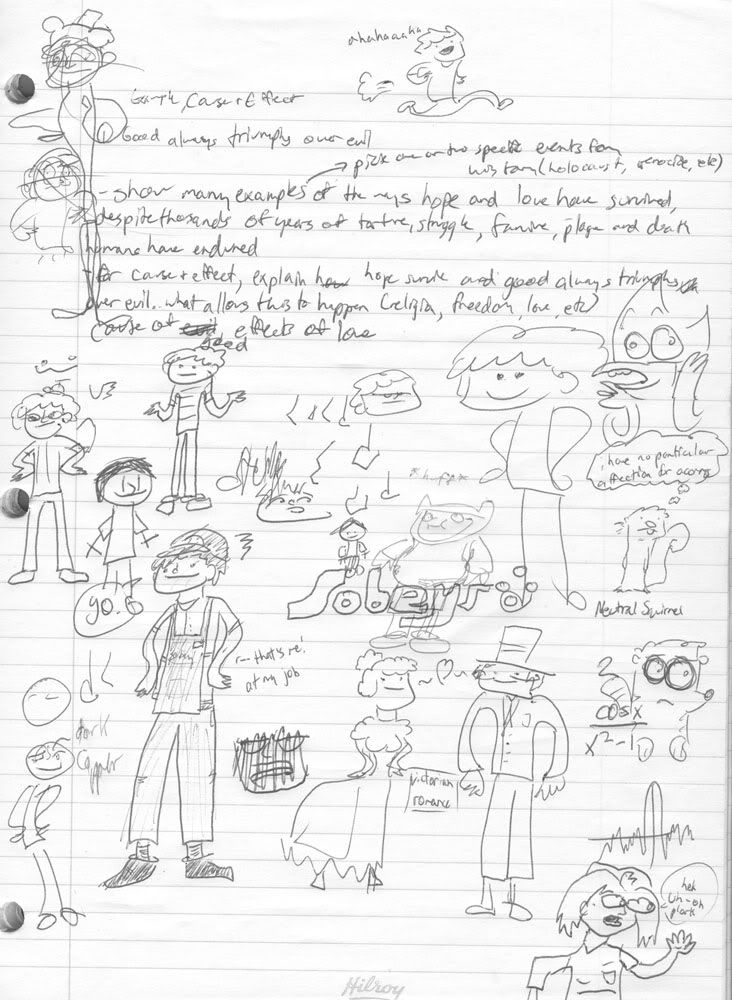 ahahaaaha
Cause + Effect
① Good always triumphs over evil
pick one or two specific events from
history (holocaust, genocide, etc)
- show many examples of the ways hope and love have survived,
despite thousands of years of torture, struggle, famine, plague and death
humans have endured
- for cause + effect, explain how hope survive and good always triumphs
over evil. what allows this to happen (religion, freedom, love, etc)
cause of evil effects of love
good
I have no particular
affection for acorns
*huff*
Neutral Squirrel
yo.
that's me!
at my job
dark
cosx
x²-1
victorian
romance
heh
uh-oh
Hilroy